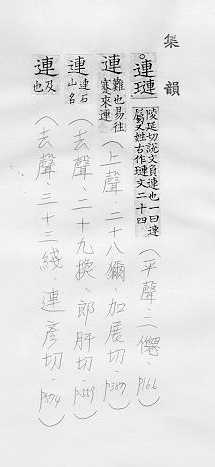 集韻
。連璉 陵延切說文員連也一曰連屬又姓古作璉文二十四(平聲·二僊·p166)
連 難也易往蹇來連(上聲·二十八獮·力展切·p387)
連 連石山名(去聲·二十九換·郎肝切·p559)
連 及也(去聲·三十三綫·連彥切·p574)